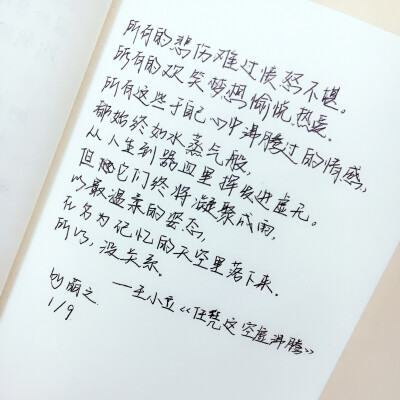 所有的悲伤难过愤怒不堪。
所有的欢笑梦想愉悦热爱。
所有这些于自己心中沸腾过的情感，
都始终如水蒸气般，
从人生到器皿里挥发进虚无。
但它们终将凝聚成雨，
以最温柔的姿态，
在名为记忆的天空里落下来。
所以，没关系。
——王小立《任凭这空虚沸腾》
1/9